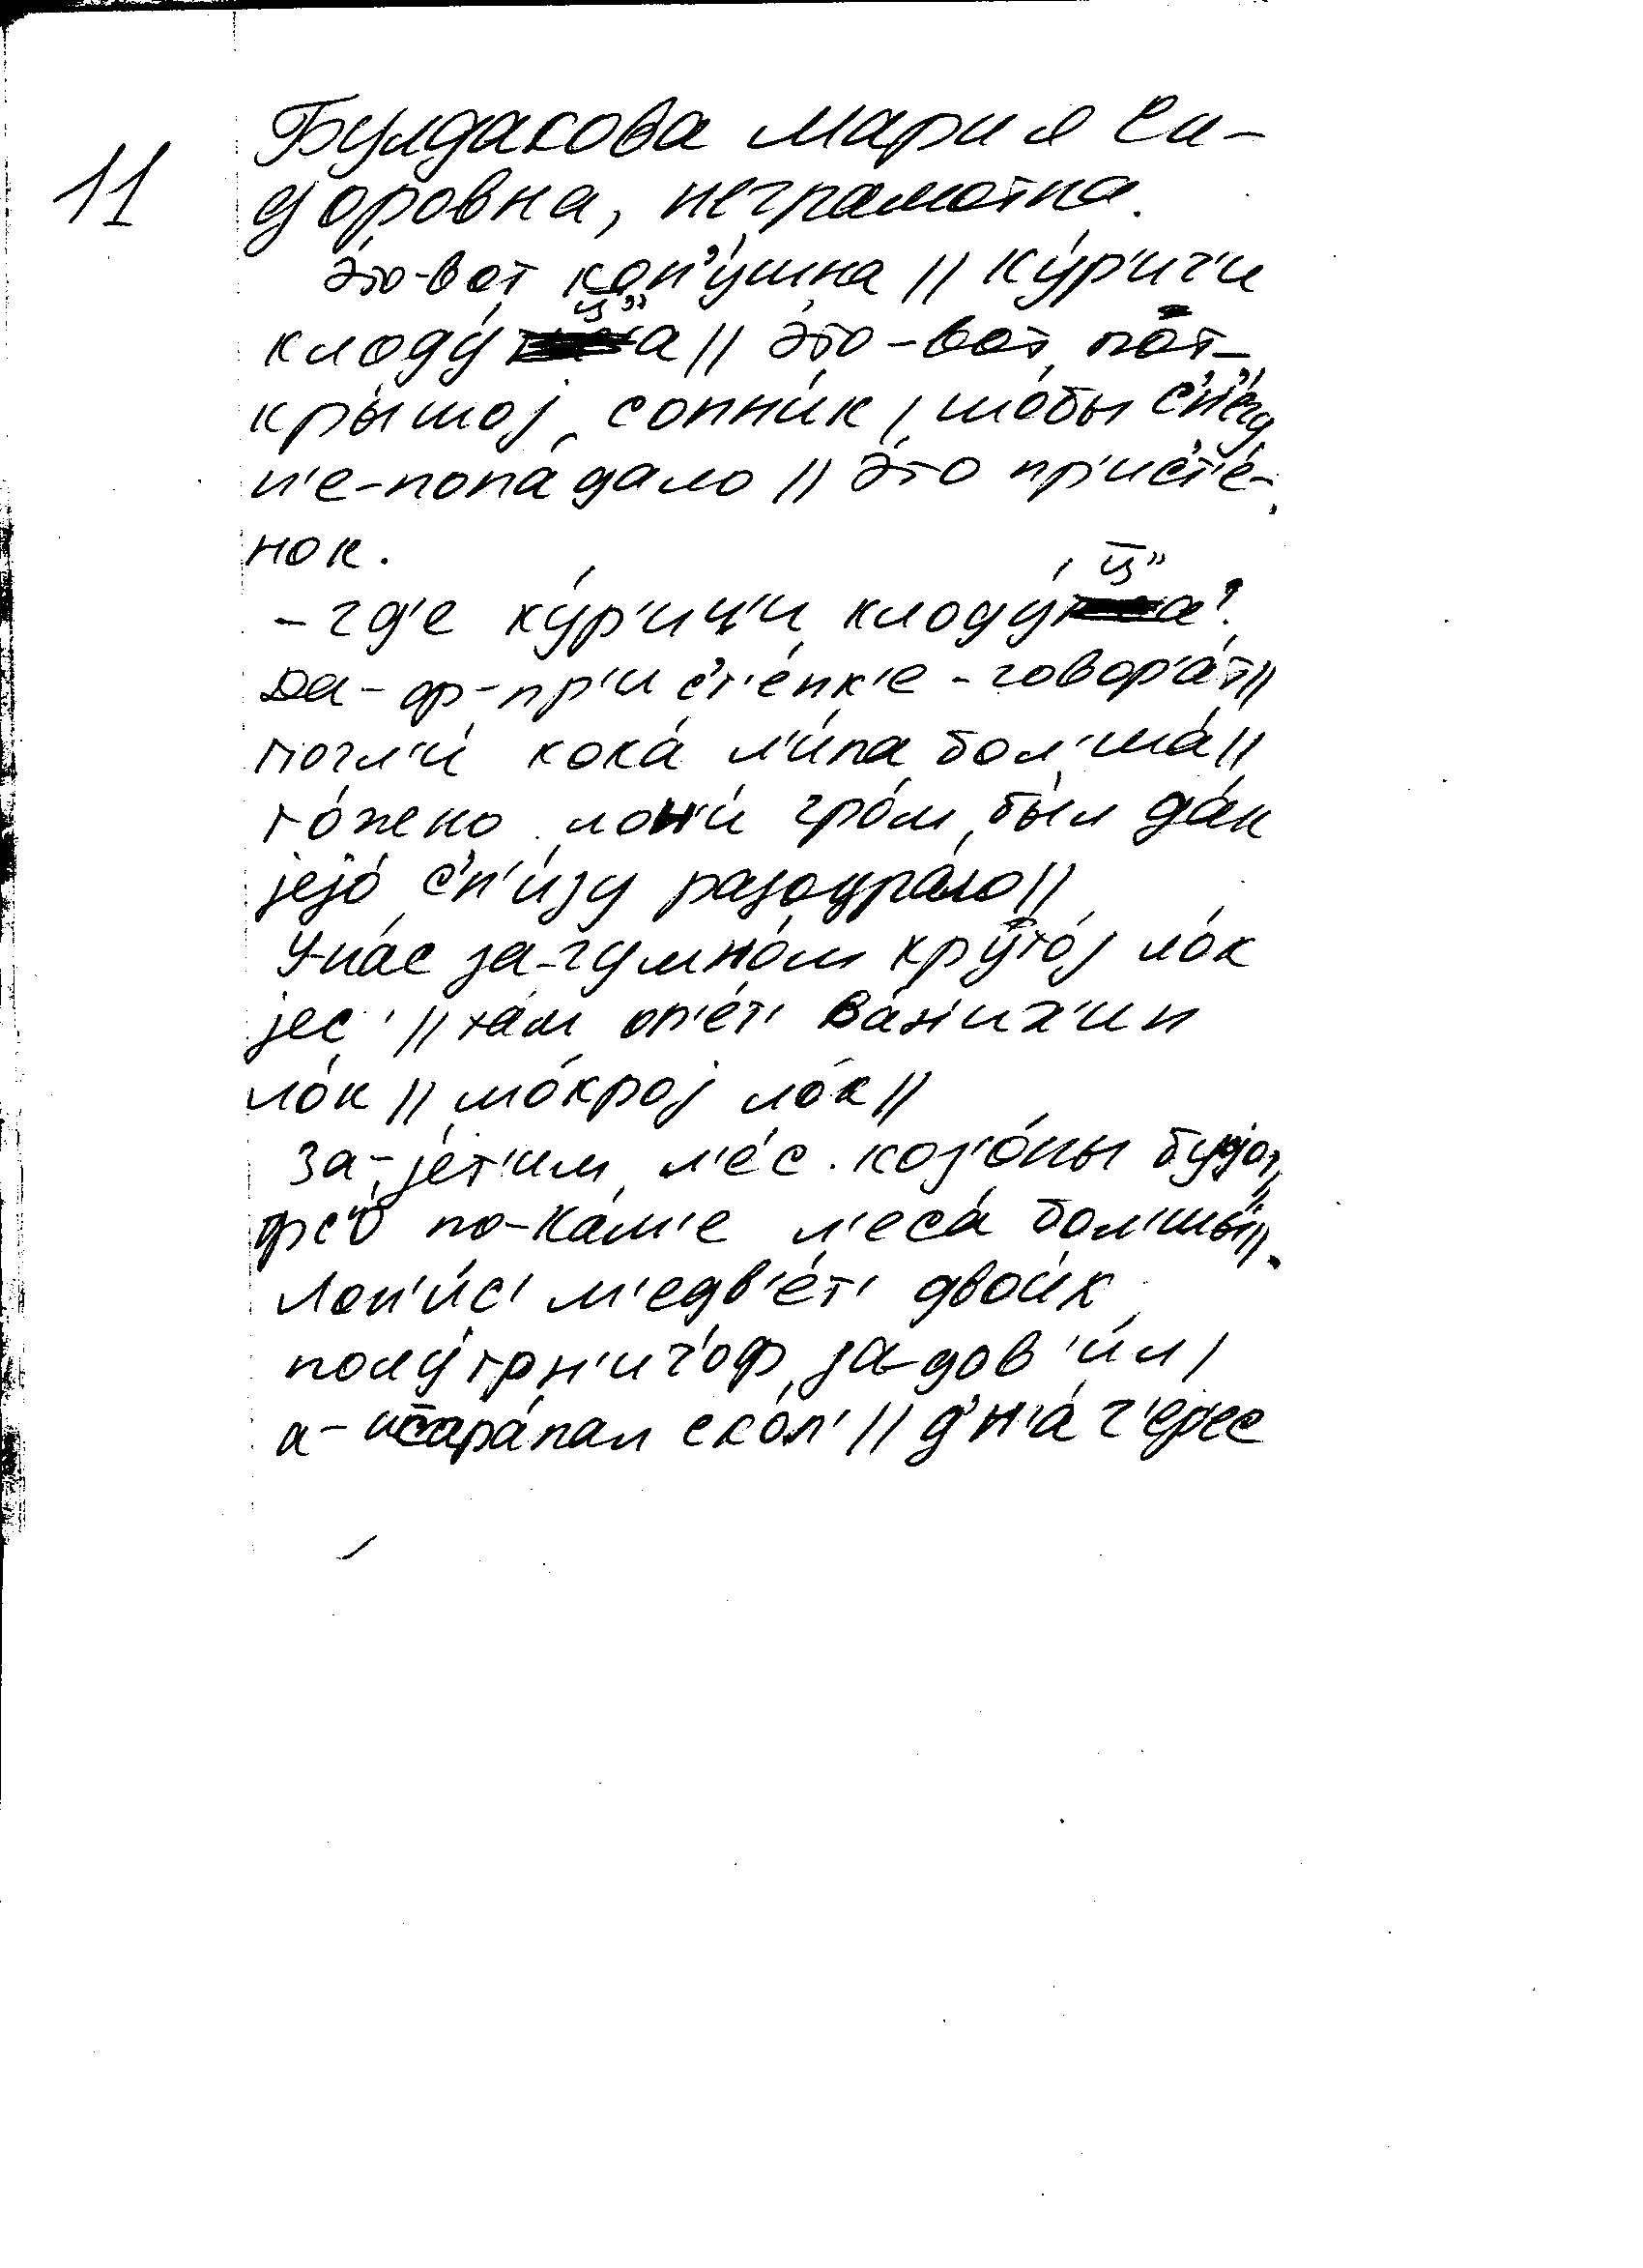 11
Булдакова Мария Си-
доровна, неграмотна.
э́то-вот кон'у́шна // ку́р'ич'и
клоду́ц̄"а // э́то-вот по̄т-
кры́шој сопн'и́к / што́бы с'н'е́гд
н'е-попа́дало // э́то пр'ис'т'е́-
нок.
- гд'е ку́р'иц'и клоду́ц̄"а?
Да-ф-пр'ис'т'е́нк'е - говор'а́т //
погл'и́ кока́ л'и́па бол'ша́ //
то́жено лон'и́ гро́м был да́к
јејо́ с'н'и́зу разодра́ло //
У-на́с за-гумно́м круто́ј ло́к
јес' // та́м оп'е́т' Ва́н'их'ин
ло́к // мо́крој ло́к //
За-је́т'им л'е́с. кој'о́ны бу́јот,
фс'о́ по-Ка́м'е л'еса́ бол'шы́ //
Лон'и́с' м'едв'е́т' двои́х
полу́торн'ич'оф за-дов'и́л /
а- исцара́пал ско́л' // д'н'а́ ч'ерес